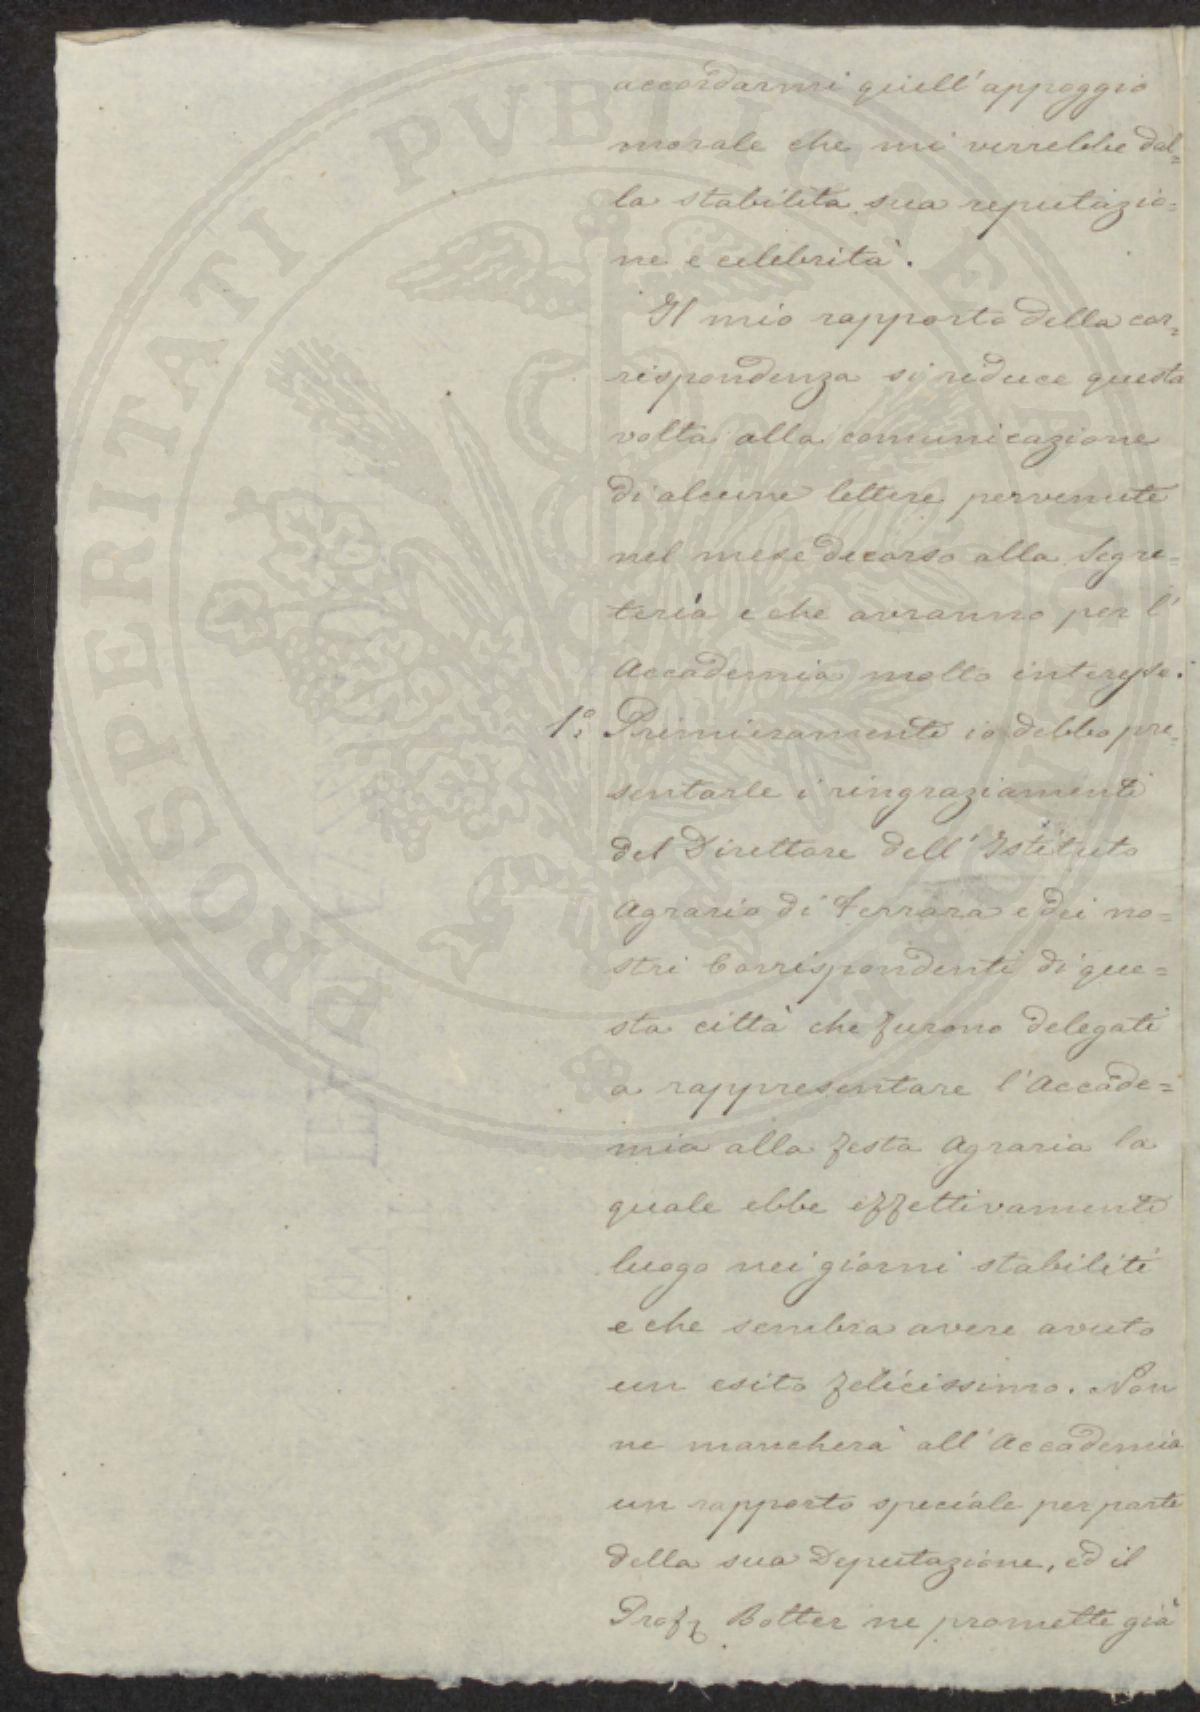 accordarmi quell'appoggio
morale che mi verrebbe dal=
la stabilita sua reputazio=
ne e celebrità.
Il mio rapporto della cor=
rispondenza si reduce questa
volta alla comunicazione
di alcune lettere pervenute
nel mese decorso alla Segre=
teria e che avranno per l'
Accademia molto interesse.
1º: Primieramente io debbo pre=
sentarle i ringraziamenti
del Direttore dell'Istituto
Agrario di Ferrara e dei no=
stri Corrispondenti di que=
sta città che furono delegati
a rappresentare l'Accade=
mia alla festa Agraria la
quale ebbe effettivamente
luogo nei giorni stabiliti
e che sembra avere avuto
un esito felicissimo. Non
ne mancherà all'Accademia
un rapporto speciale per parte
della sua Deputazione, ed il
Prof. Botter ne promette già
PROSPERITATI PUBLICAE AUGENDAE